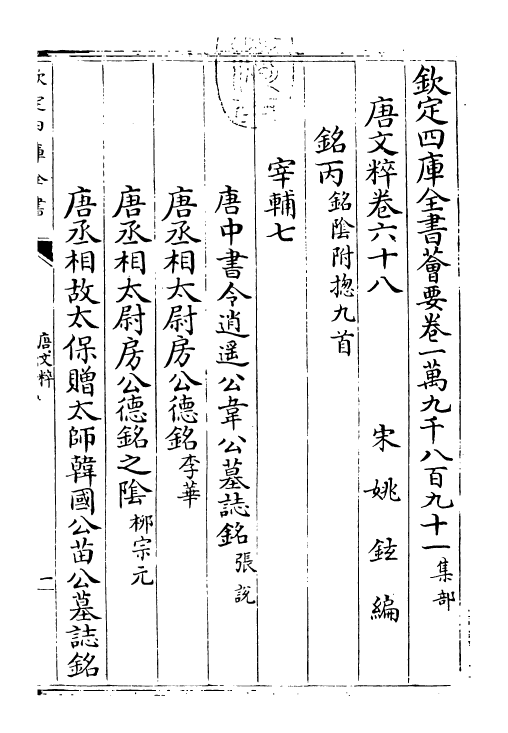 欽定四庫全書薈要卷一萬九千八百九十一集部
唐文粹卷六十八　宋姚鉉編
銘丙銘陰附摠九首
宰輔七
唐中書令逍遥公韋公墓誌銘張說
唐丞相太尉房公德銘李華
唐丞相太尉房公德銘之隂柳宗元
唐丞相故太保贈太師韓國公苗公墓誌銘
欽定四庫全書
唐文粹
一